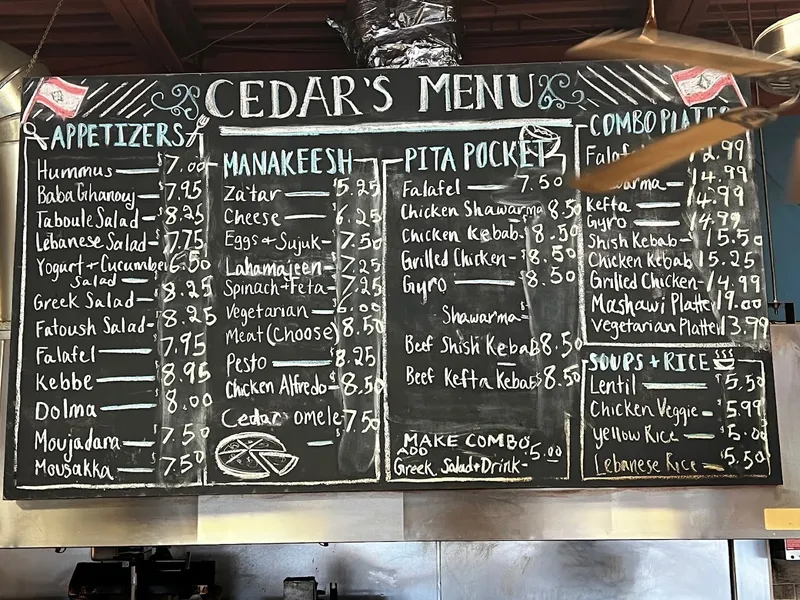 CEDAR'S MENU
APPETIZERS
Hummus $7.00
Baba Ghanouj $7.95
Taboule Salad $8.25
Lebanese Salad $7.75
Yogurt + Cucumber Salad $6.50
Greek Salad $8.25
Fatoush Salad $8.25
Falafel $7.95
Kebbe $8.95
Dolma $8.00
Moujadara $7.50
Mousakka $7.50
MANAKEESH
Za'tar $5.25
Cheese $6.25
Eggs + Sujuk $7.50
Lahamajeen $7.25
Spinach + Feta $7.25
Vegetarian $6.00
Meat (Choose) $8.50
Pesto $8.25
Chicken Alfredo $8.50
Cedar omele $7.50
PITA POCKET
Falafel 7.50
Chicken Shawarma 8.50
Chicken Kebab $8.50
Grilled Chicken $8.50
Gyro $8.50
Shawarma
Beef Shish Kebab 8.50
Beef Kefta Kebab $8.50
MAKE COMBO
ADD $5.00
Greek Salad + Drink
COMBO PLATE
Falaf 2.99
arma 14.99
Kefta 14.99
Gyro 14.99
Shish Kebab 15.50
Chicken Kebab 15.25
Grilled Chicken 14.99
Mashawi Platte 19.00
Vegetarian Platte 13.99
SOUPS + RICE
Lentil $5.50
Chicken Veggie $5.99
Yellow Rice $5.00
Lebanese Rice $5.50